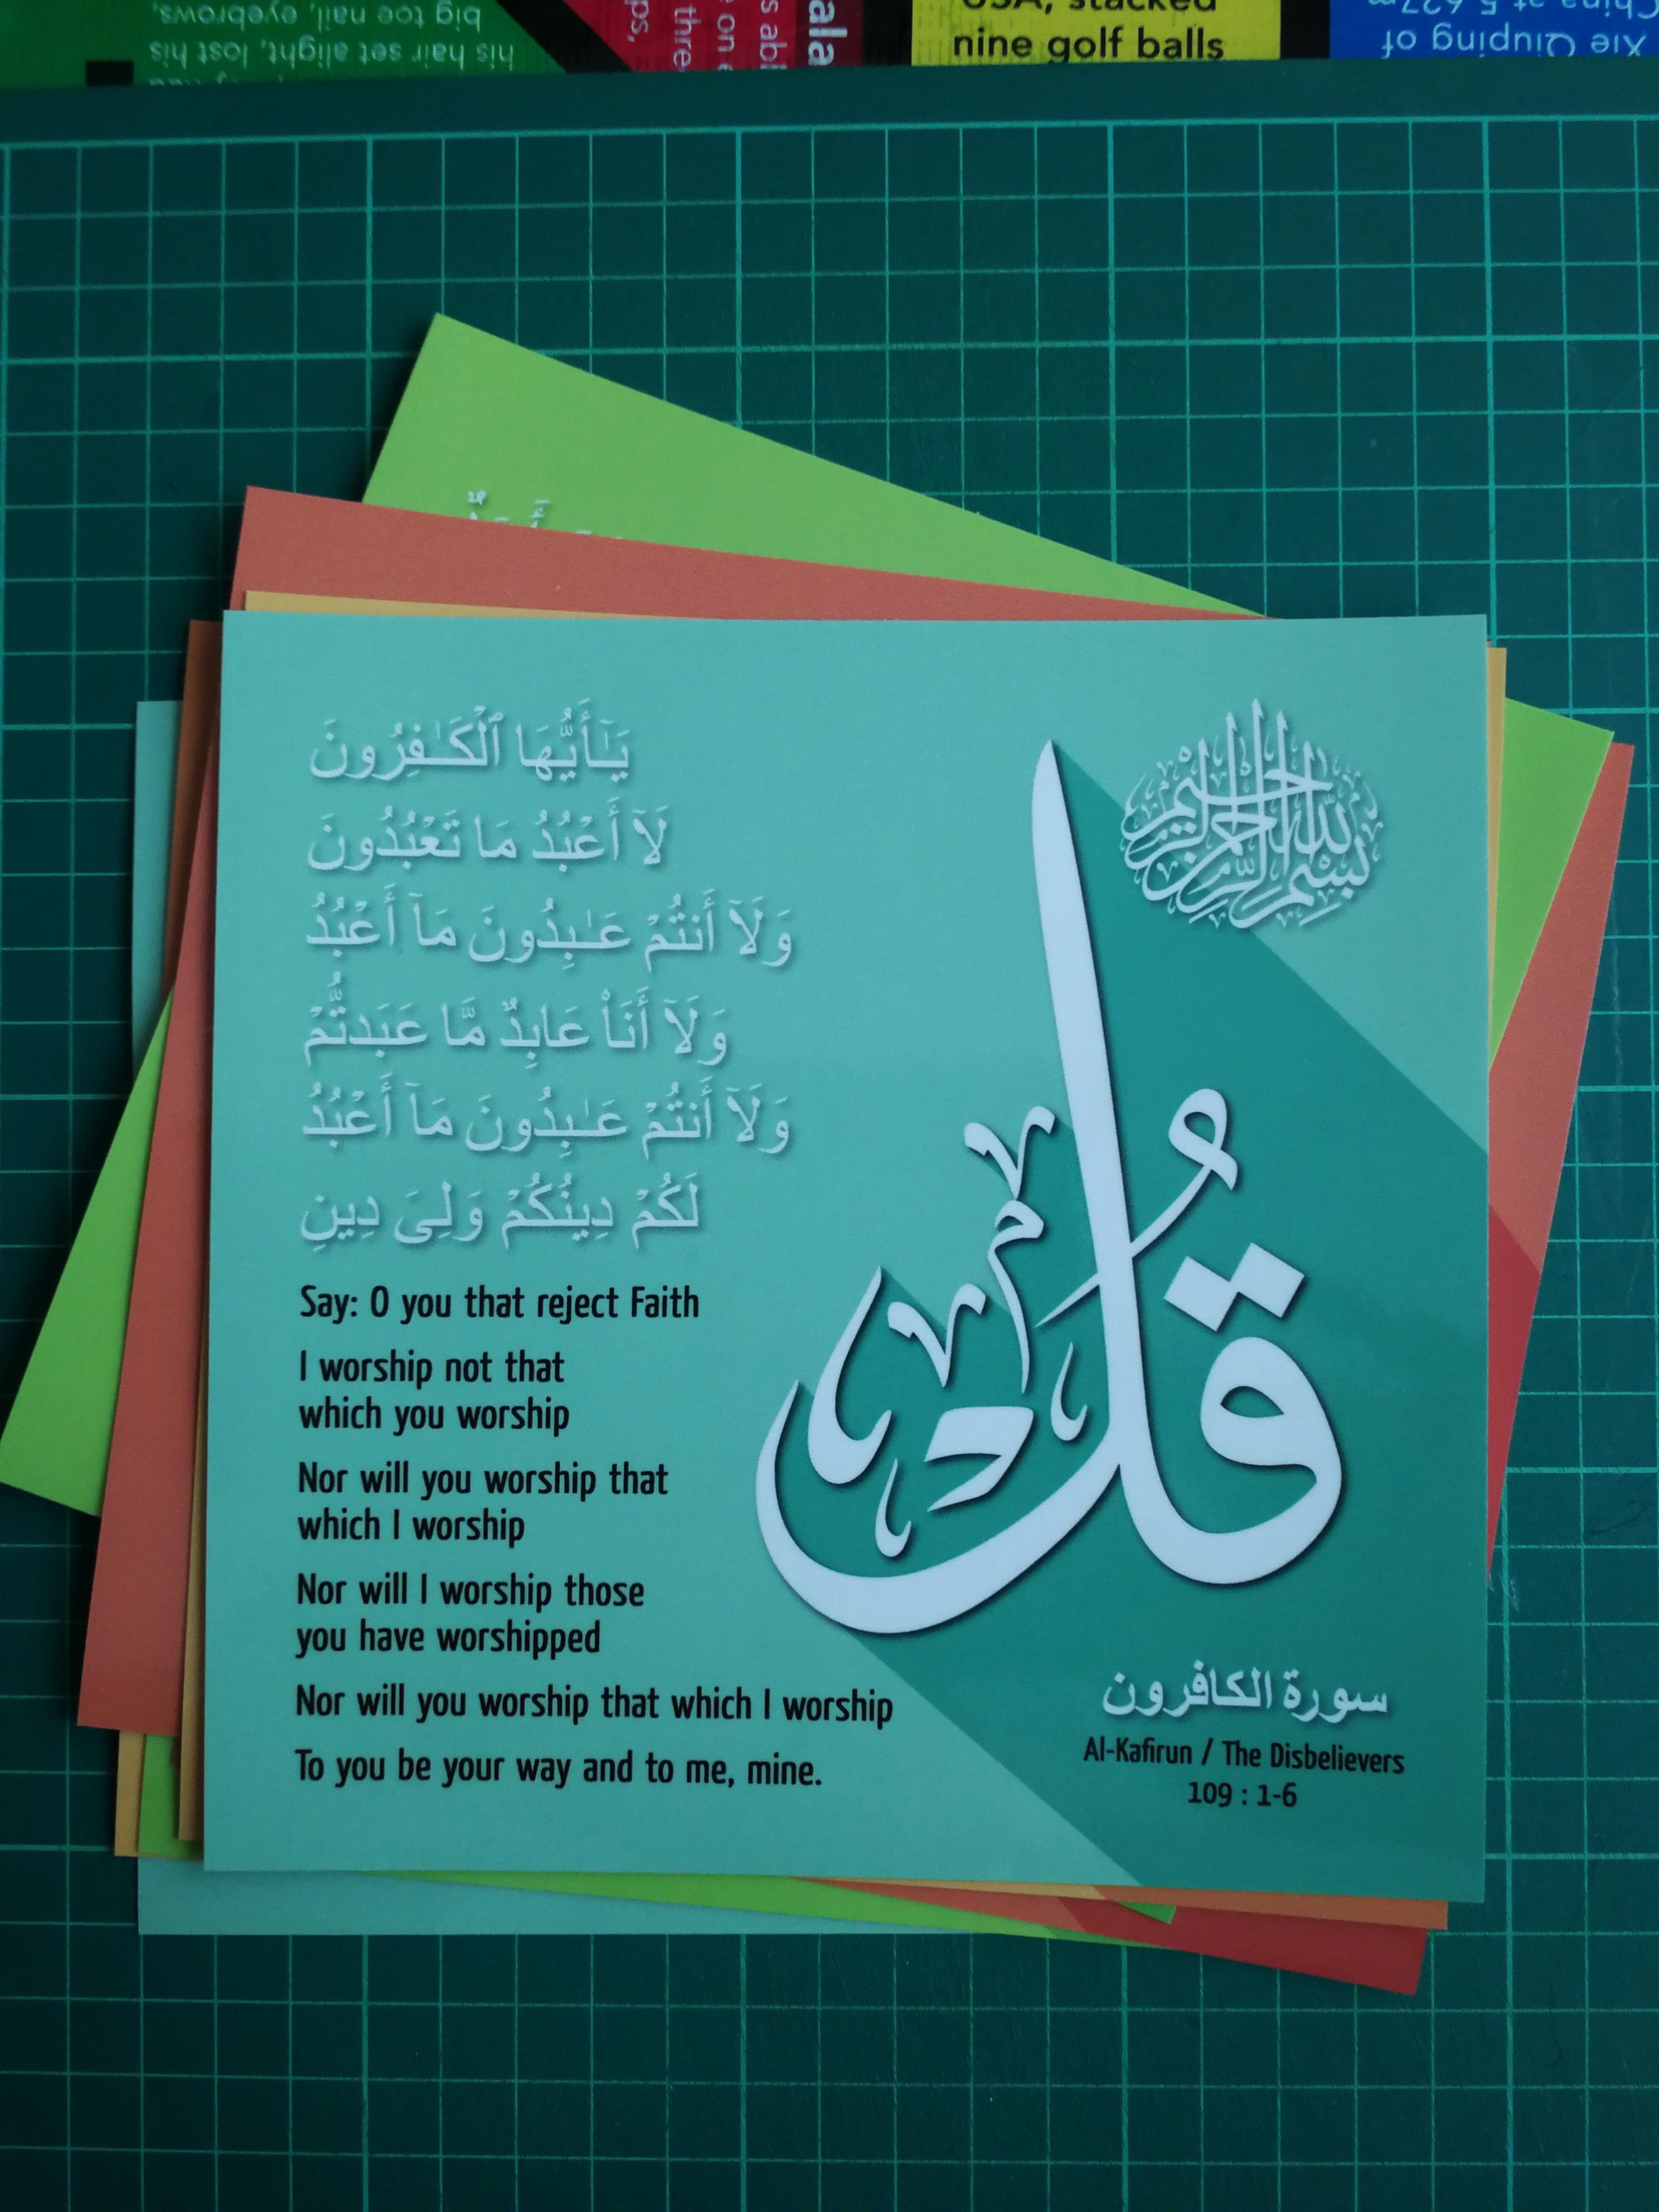 his hair set alight, lost his
big toe nail, eyebrows,
ala
s abl
on
thre
ps,
USA, stacked
nine golf balls
Xie Qiuping of
China at 5.627m
يَـٰٓأَيُّهَا ٱلْكَـٰفِرُونَ
لَآ أَعْبُدُ مَا تَعْبُدُونَ
وَلَآ أَنتُمْ عَـٰبِدُونَ مَآ أَعْبُدُ
وَلَآ أَنَا۠ عَابِدٌ مَّا عَبَدتُّمْ
وَلَآ أَنتُمْ عَـٰبِدُونَ مَآ أَعْبُدُ
لَكُمْ دِينُكُمْ وَلِىَ دِينِ
بسم الله الرحمن الرحيم
قُلْ
Say: O you that reject Faith
I worship not that
which you worship
Nor will you worship that
which I worship
Nor will I worship those
you have worshipped
Nor will you worship that which I worship
To you be your way and to me, mine.
سورة الكافرون
Al-Kafirun / The Disbelievers
109 : 1-6